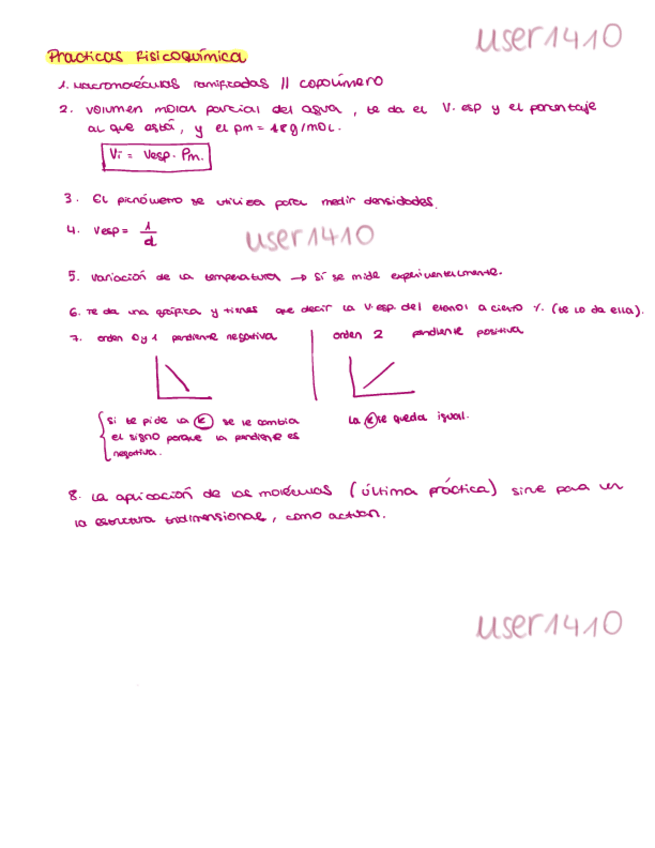 user1410
Practicas Fisicoquímica
1. Macromoléculas ramificadas || copolímero
2. volumen molar parcial del agua, te da el V. esp y el porcentaje
al que está, y el pm = 18g/mol.
Vi = Vesp. Pm.
3. El picnómetro se utiliza para medir densidades.
4. Vesp = 1/d
user1410
5. Variación de la temperatura → sí se mide experimentalmente.
6. Te da una gráfica y tienes que decir la V.esp. del etanol a cierto %. (te lo da ella).
7. orden 0 y 1 pendiente negativa | orden 2 pendiente positiva
Si te pide la K se le cambia
el signo porque la pendiente es
negativa.
La K se queda igual.
8. La aplicación de las moléculas (última práctica) sirve para ver
la estructura tridimensional, como actúan.
user1410